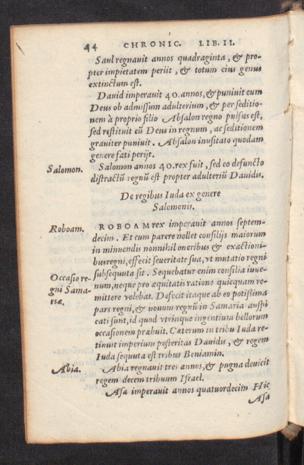 44 CHRONIC. LIB. II.
Saul regnauit annos quadraginta, & pro-
pter impietatem periit, & totum eius genus
extinctum est.
Dauid imperauit 40. annos, & puniuit eum
Deus ob admissum adulterium, & per seditio-
nem à proprio filio Absalon regno pulsus est,
sed restituit eū Deus in regnum, ac seditionem
grauiter puniuit. Absalon inusitato quodam
genere fati perijt.
Salomon.
Salomon annos 40. rex fuit, sed eo defuncto
distractū regnū est propter adulteriū Dauidis.
De regibus Iuda ex genere
Salomonis.
Roboam.
ROBOAM rex imperauit annos septem-
decim. Et cum parere nollet consilijs maiorum
in minuendis nonnihil oneribus & exactioni-
bus regni, effecit seueritate sua, vt mutatio regni
Occasio re-
gni Sama-
riæ.
subsequuta sit. Sequebatur enim consilia iuue-
num, neque pro æquitatis ratione quicquam re-
mittere volebat. Defecit itaque ab eo potissima
pars regni, & nouum regnū in Samaria auspi
cati sunt, id quod vtrinque ingentium bellorum
occasionem præbuit. Cæterum in tribu Iuda re-
tinuit imperium posteritas Dauidis, & regem
Iuda sequuta est tribus Beniamin.
Abia.
Abia regnauit tres annos, & pugna deuicit
regem decem tribuum Israel.
Asa imperauit annos quatuordecim Hic
Asa